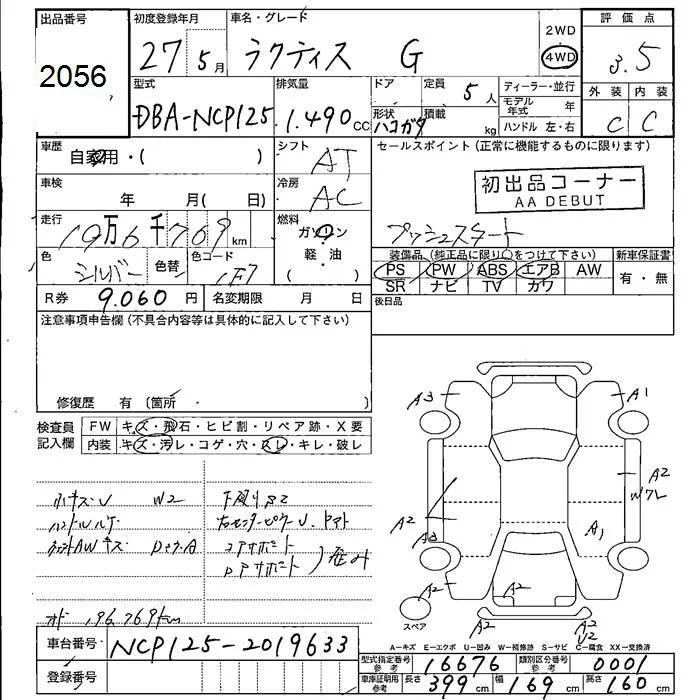 出品番号 初度登録年月 車名・グレード 評価点
2056 27 5月 ラクティス G 2WD 4WD 3.5
型式 排気量 ドア 定員 5人 ディーラー・並行 外装 内装
DBA-NCP125 1.490cc 形状 ハコガタ 積載 kg モデル年式 年 C C
ハンドル 左・右
車歴 自家用・( ) シフト AT セールスポイント(正常に機能するものに限ります)
車検 年 月( 日) 冷房 AC 初出品コーナー
AA DEBUT
走行 19万6千769km 燃料 ガソリン プッシュスタート
軽・油
( )
色 シルバー 色替 色コード 1F7 装備品(純正品に限り〇をつけて下さい) 新車保証書
PS PW ABS エアB AW 有・無
SR ナビ TV カワ
R券 9.060円 名変期限 月 日 後日品
注意事項申告欄(不具合内容等は具体的に記入して下さい)
修復歴 有(箇所 )
検査員 FW キズ・飛石・ヒビ割・リペア跡・X要
記入欄 内装 キズ・汚レ・コゲ・穴・スレ・キレ・破レ
A3 A1
A2 W2
A2 A3
A2 Wワレ
A1
A2 A2 A2
A2 A2
スペア
オド 196.769km
A-キズ E-エクボ U-凹み W-補修跡 S-サビ C-腐食 XX-交換済
車台番号 NCP125-2019633
登録番号
型式指定番号 参考 16676 類別区分番号 参考 0001
車庫証明用 参考 長さ 399cm 幅 169cm 高さ 160cm